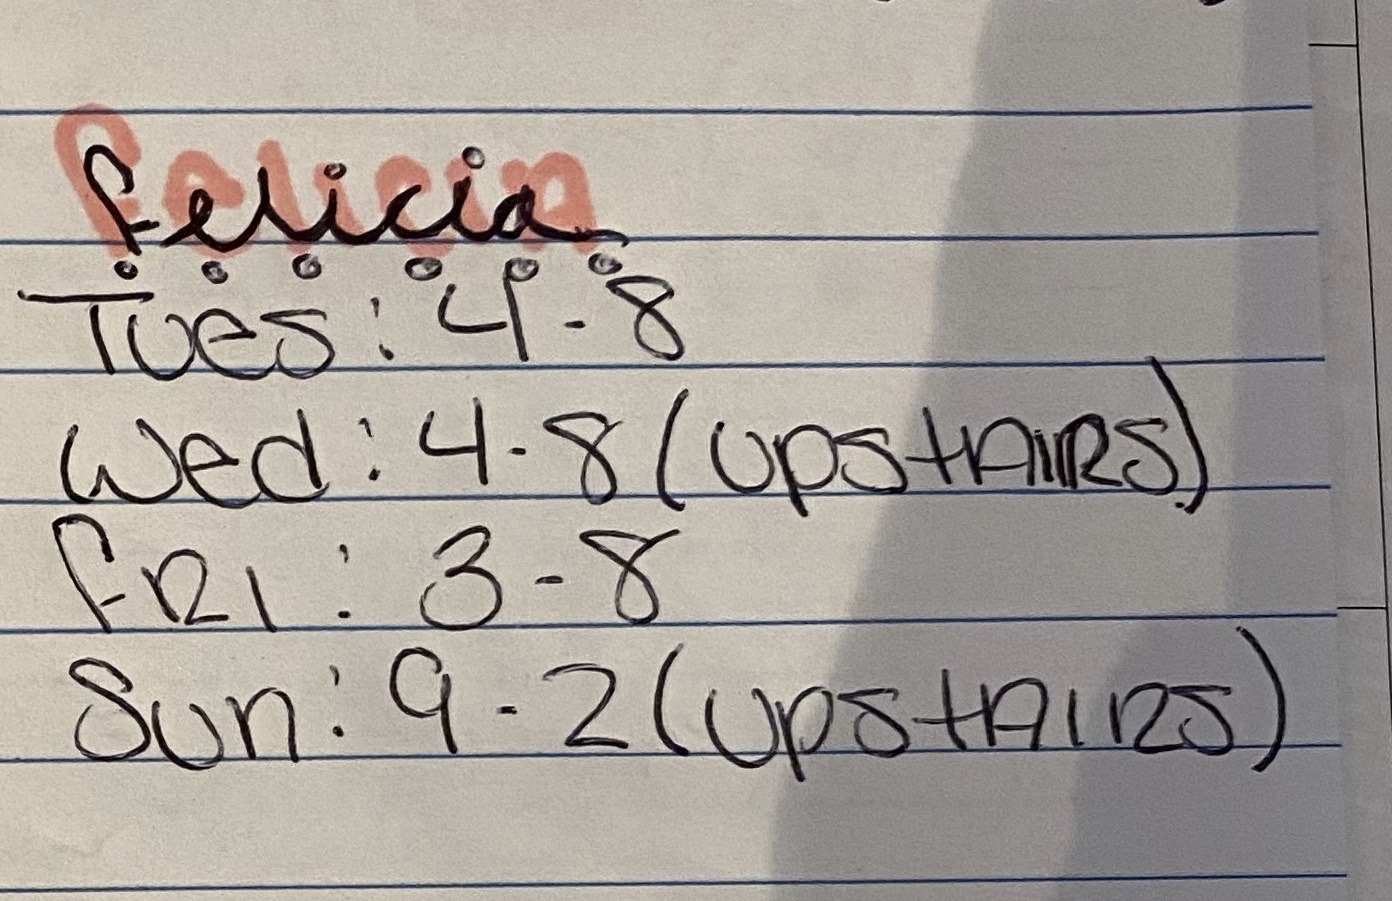 felicia
Tues: 4-8
Wed: 4-8 (upstAiRS)
fRI: 3-8
Sun: 9-2 (upstAIRS)